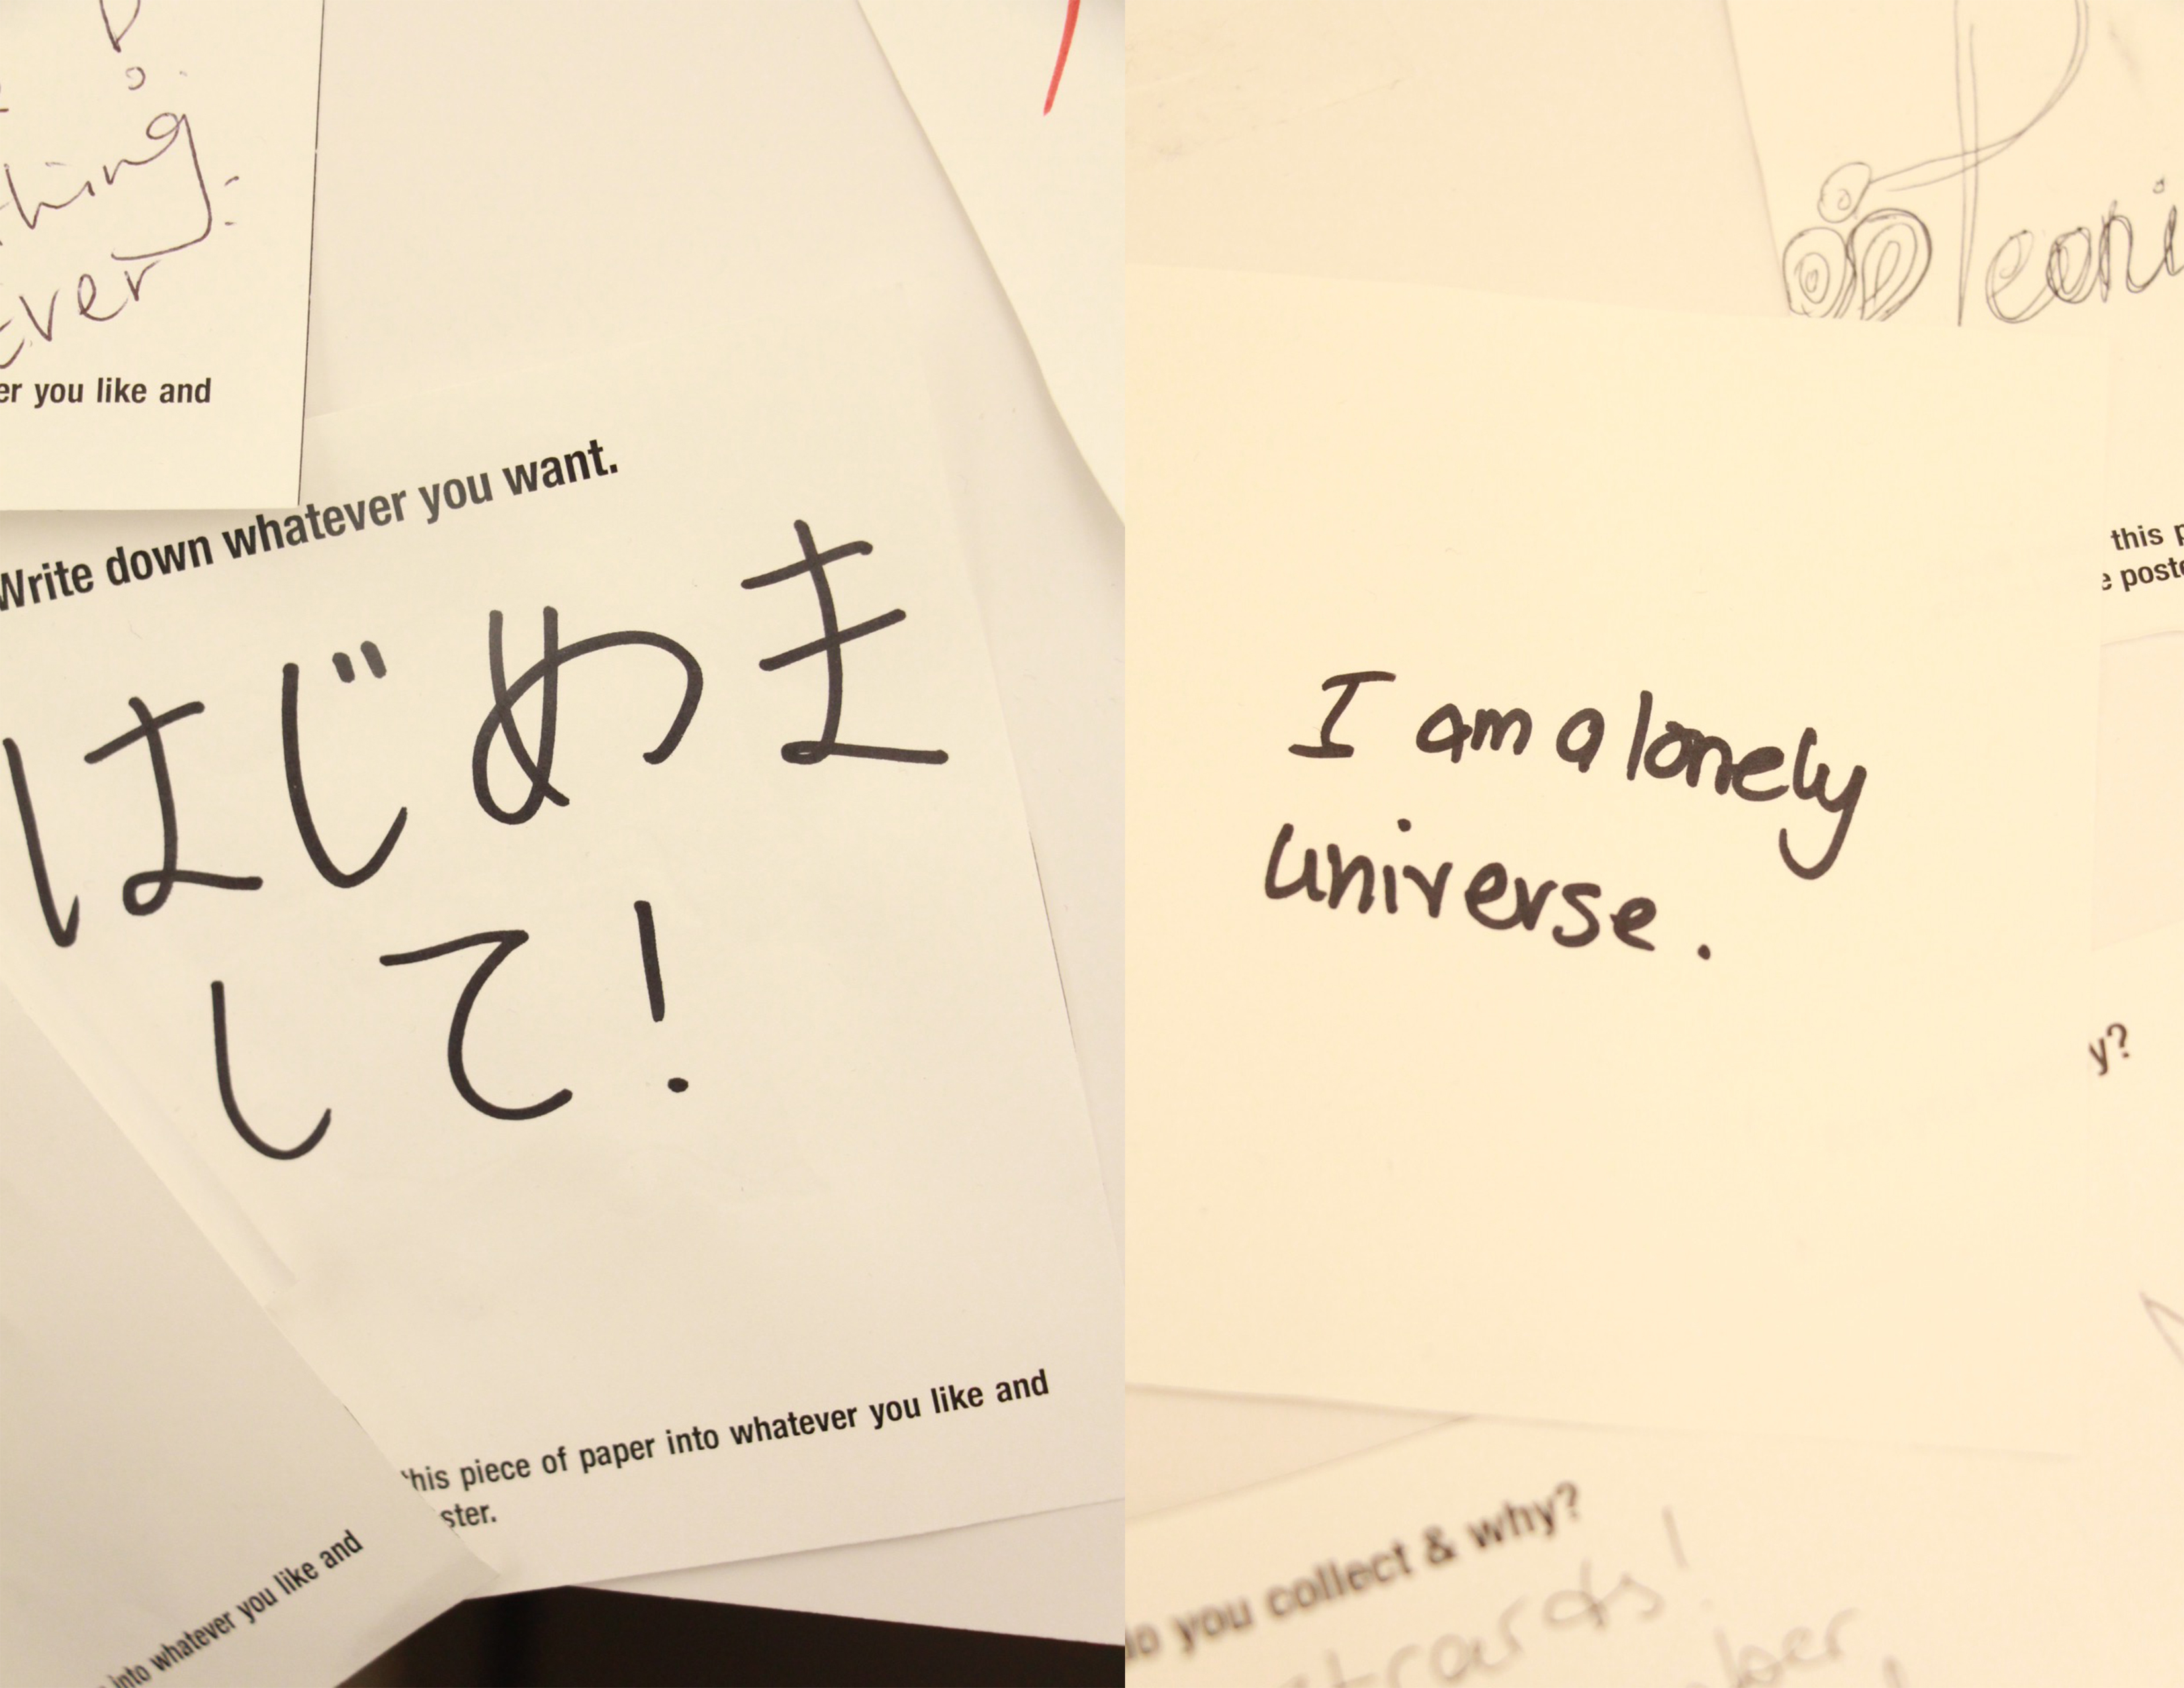 er you like and
Write down whatever you want.
はじめま
して!
his piece of paper into whatever you like and
ster.
into whatever you like and
this p
e poste
I am a lonely
universe.
y?
do you collect & why?